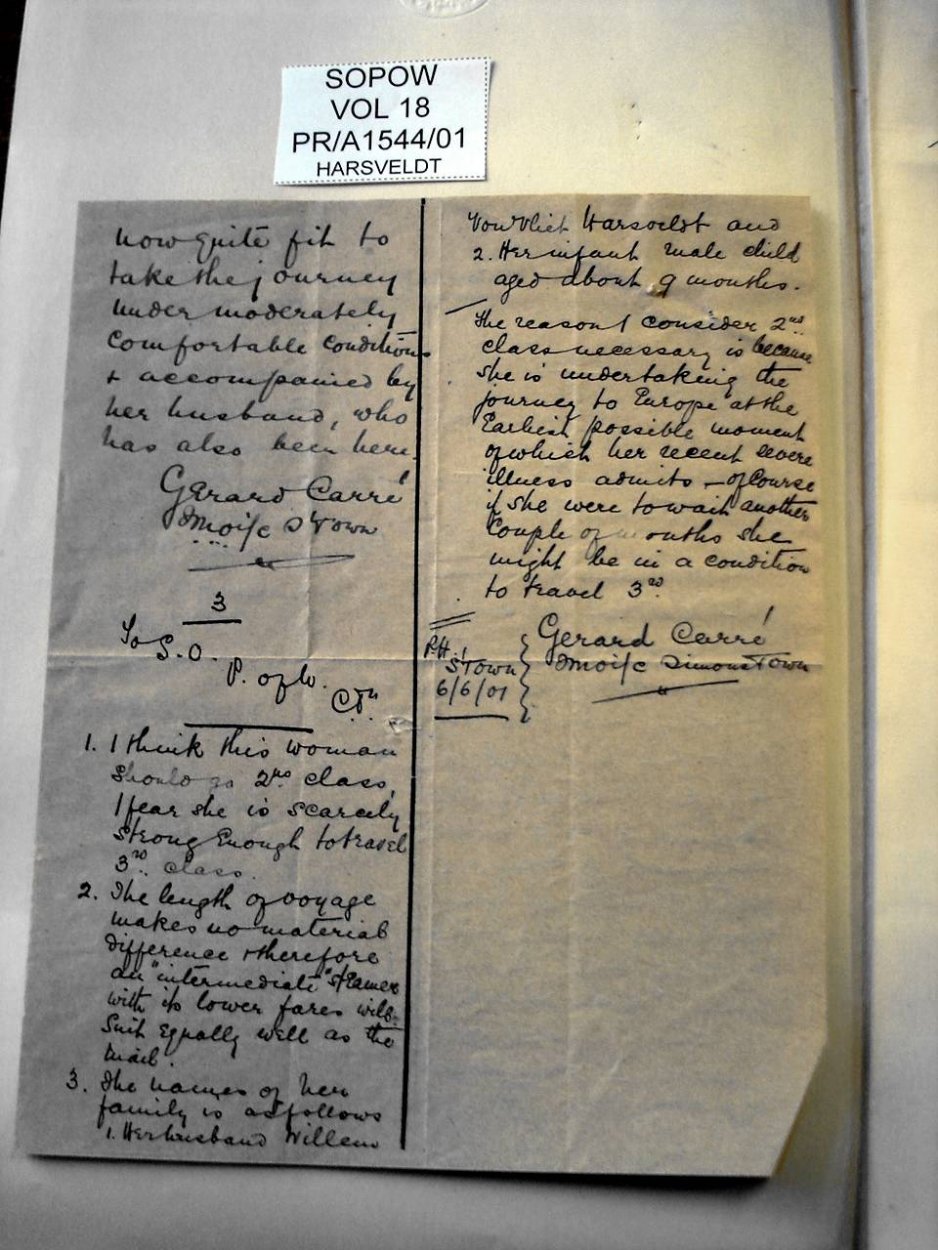 SOPOW
VOL 18
PR/A1544/01
HARSVELDT
now quite fit to
take the journey
under moderately
comfortable conditions
& accompanied by
her husband, who
has also been here.
Gerard Carré
S'Town
3
To S.O.
P. of W.
C.Tn
1. I think this woman
should go 2nd class,
I fear she is scarcely
strong enough to travel
3rd class.
2. The length of voyage
makes no material
difference & therefore
an "intermediate" steamer
with its lower fares will
suit equally well as the
mail.
3. The names of her
family is as follows
1. Her husband Willem
Van Vliet Harsveldt and
2. Her infant male child
aged about 9 months.
The reason I consider 2nd
class necessary is because
she is undertaking the
journey to Europe at the
Earliest possible moment
of which her recent severe
illness admits - of course
if she were to wait another
couple of months she
might be in a condition
to travel 3rd
P.H.
S'Town
6/6/01
Gerard Carré
Simons Town